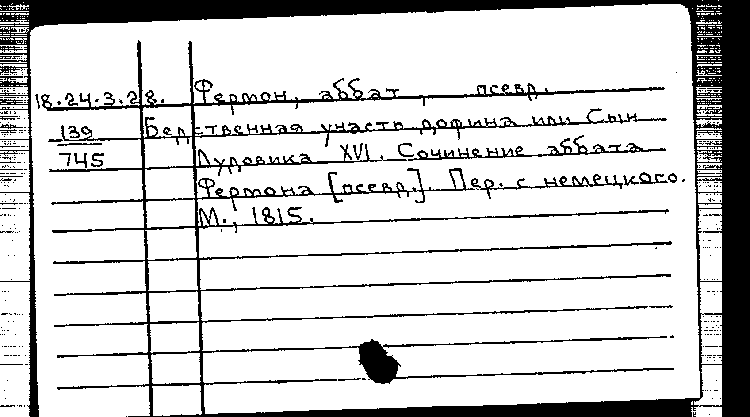 18.24.3.28. Фермон, аббат, псевд.
139 Бедственная участь дофина или Сын
745 Лудовика XVI. Сочинение аббата
Фермона [псевд.]. Пер. с немецкого.
М., 1815.